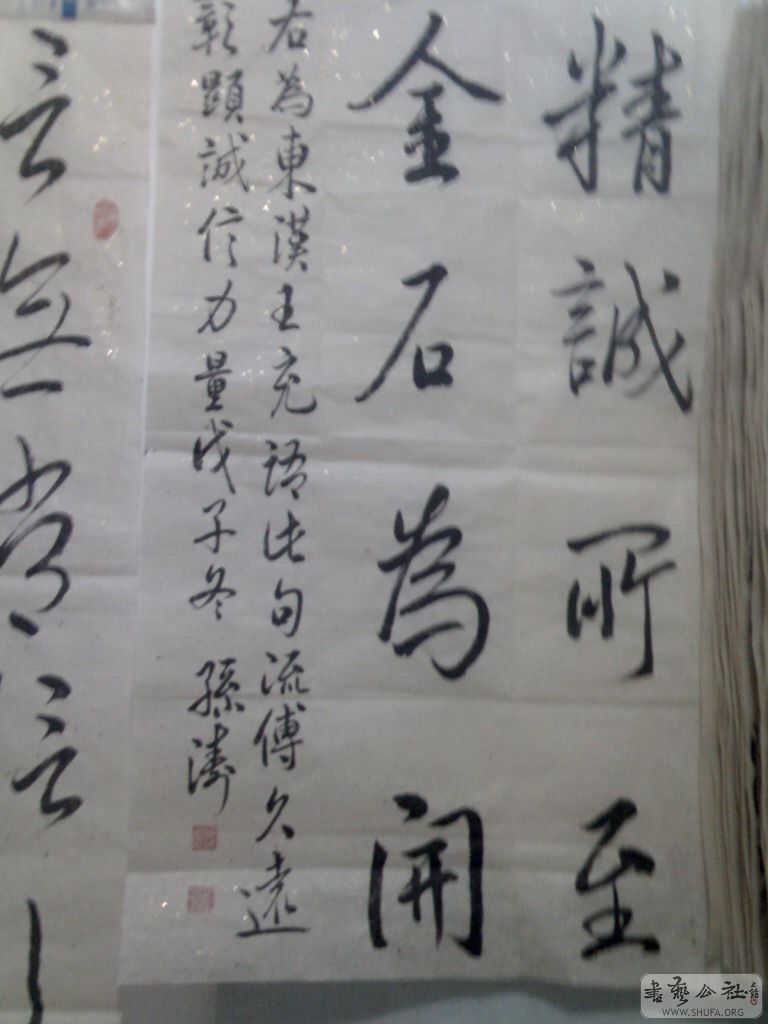 精誠所至
金石為開
右為東漢王充語此句流傳久遠
彰顯誠信力量戊子冬 孫濤
言無常信
書藝公社
WWW.SHUFA.ORG